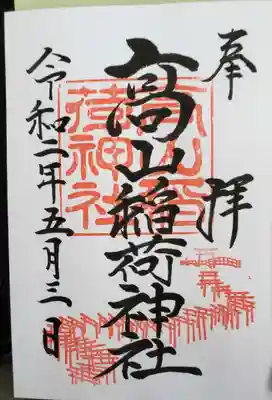 奉拝
高山稲荷神社
令和二年五月三日
高山稲荷神社